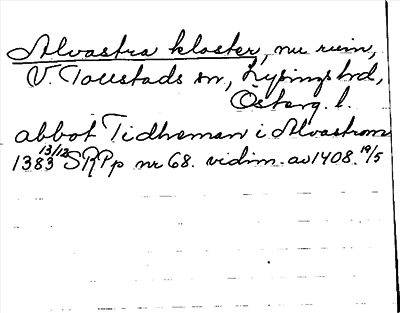 Alvastra kloster, nu ruin,
V. Tollstads sn, Lysings hd,
Österg. l.
abbot Tidheman i Alvastrom
1383 13/12 SRPp nr 68. vidim. av 1408. 19/5